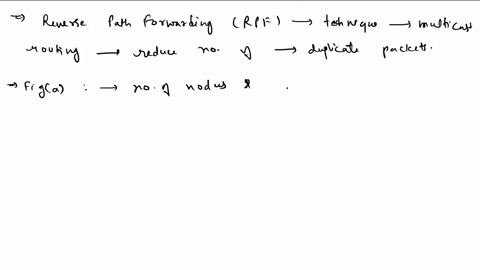 → Reverse Path Forwarding (RPF) → technique → multicast
routing → reduce no. of → duplicate packets.
→ Fig(a) : → no. of nodes &